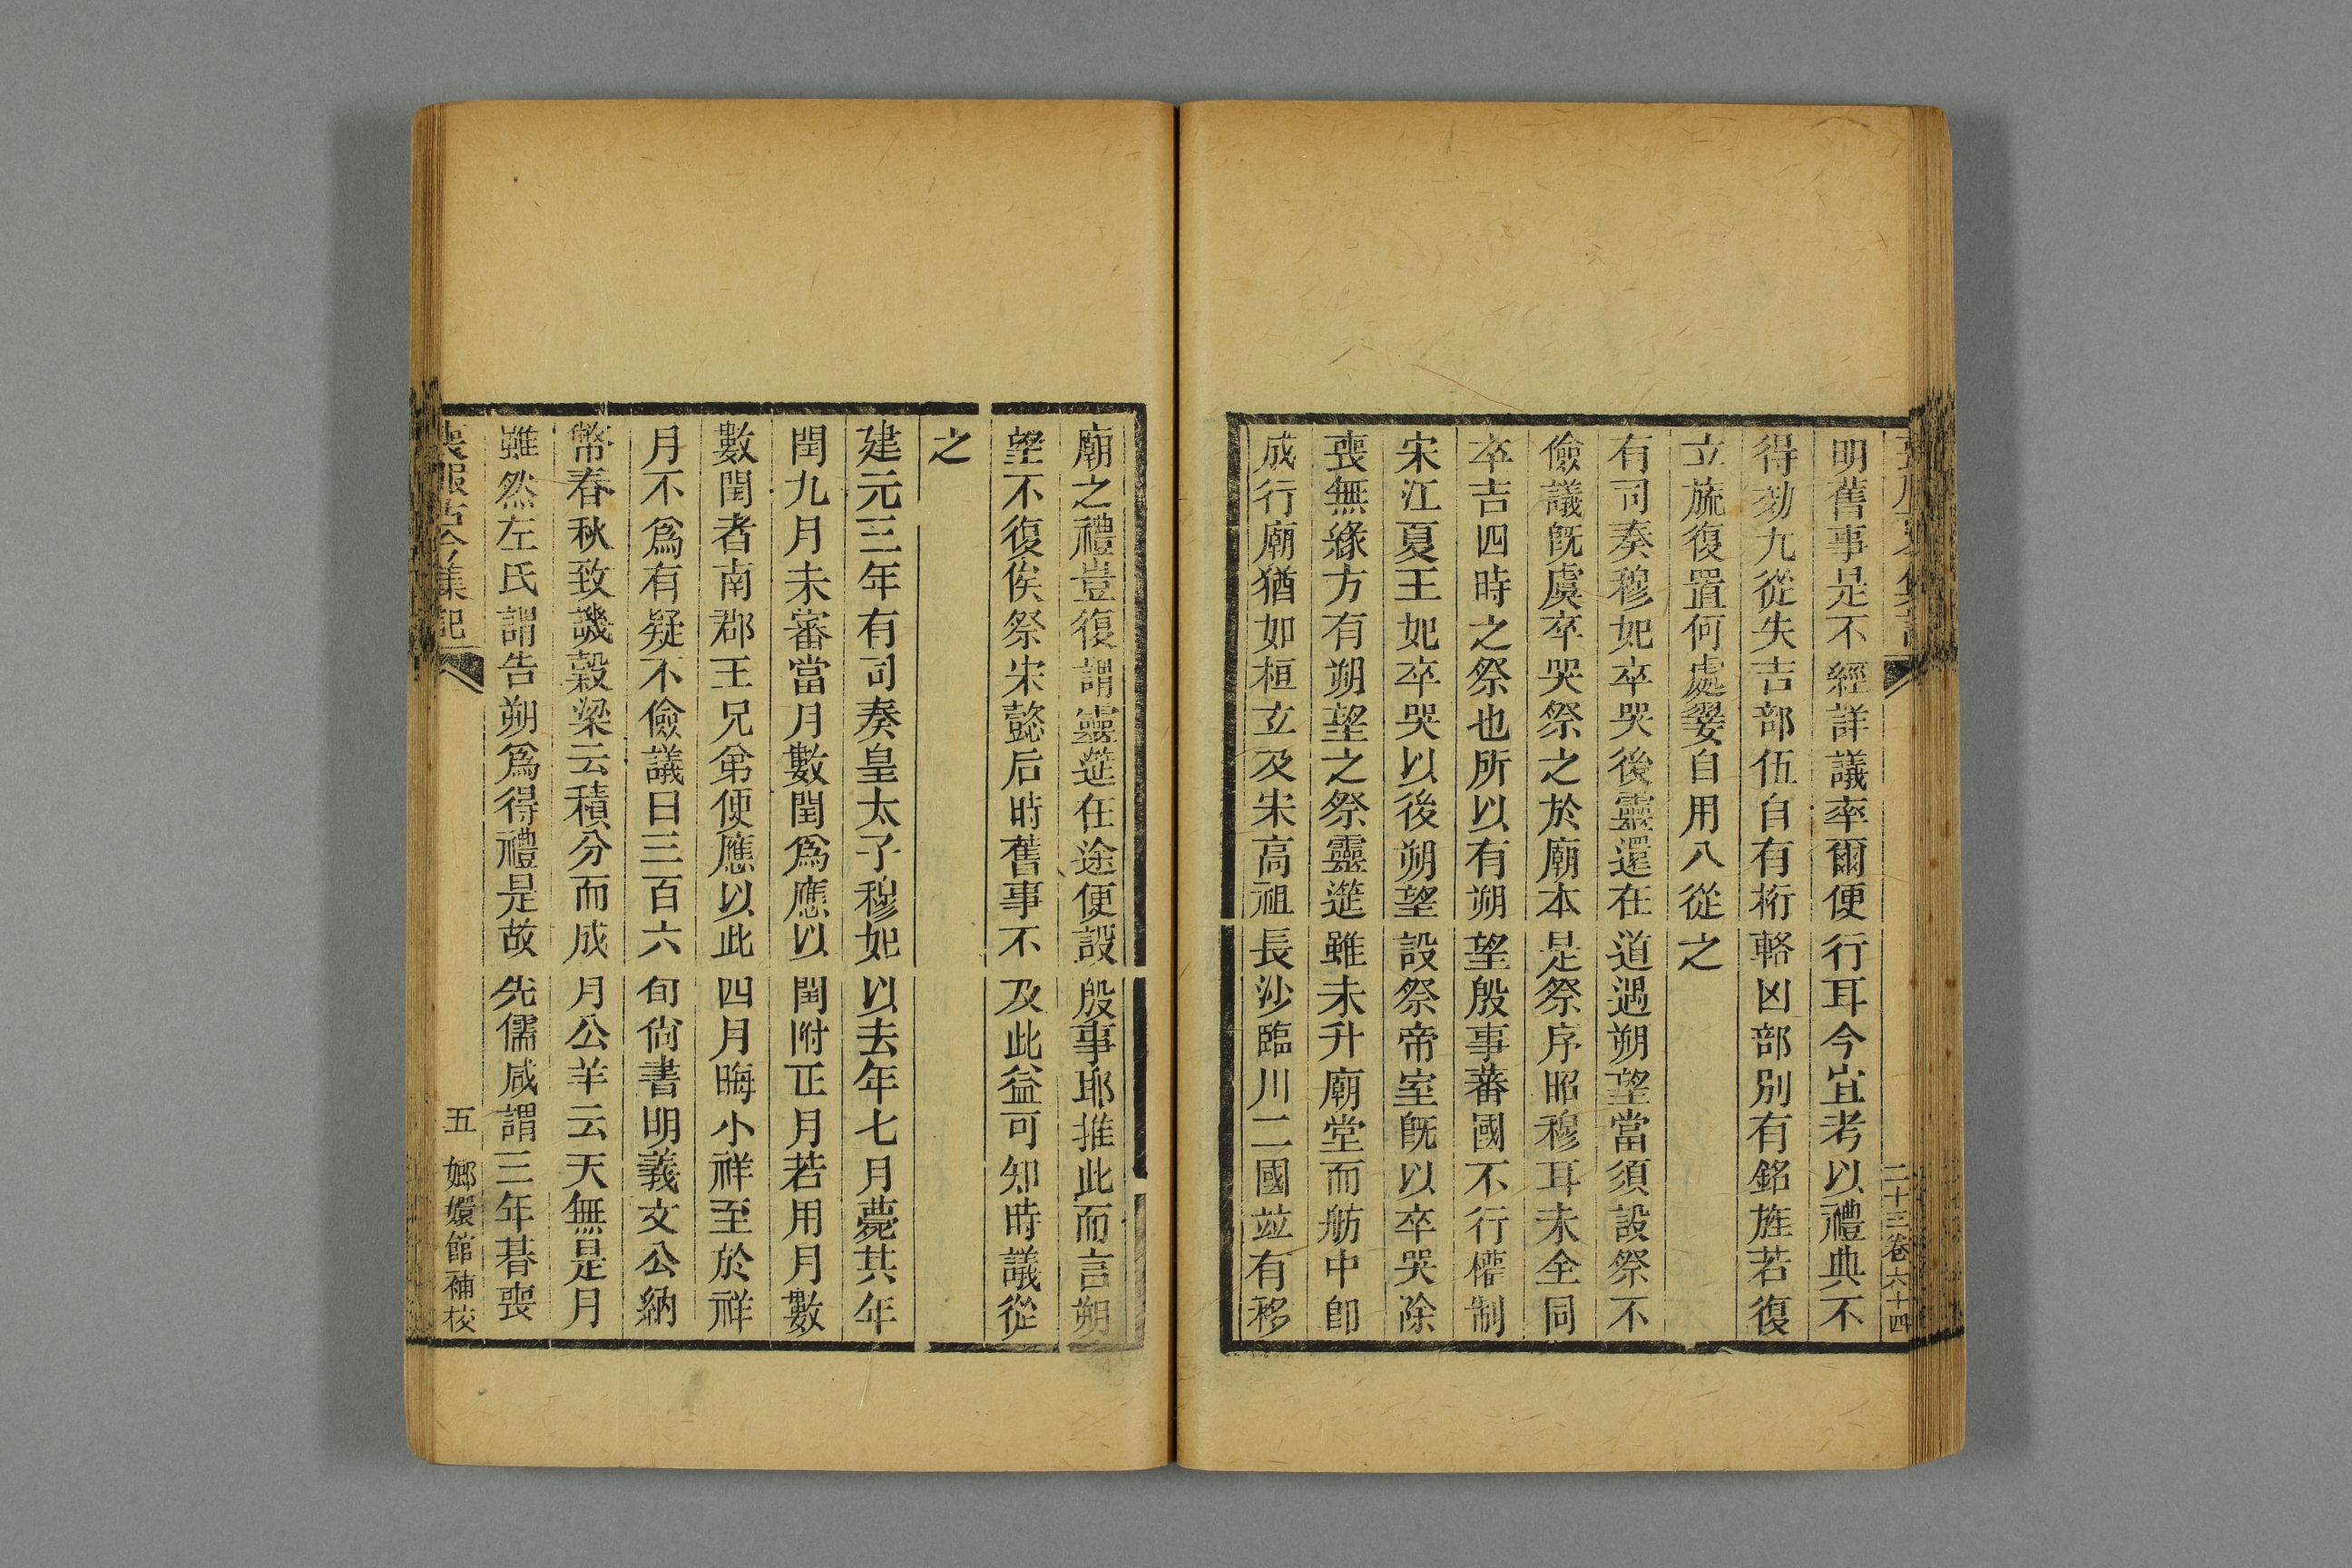 二十三卷六十四
明舊事是不經詳議率爾便行耳今宜考以禮典不
得効九從失吉部伍自有桁輅凶部別有銘旌若復
立旒復置何處翣自用八從之
有司奏穆妃卒哭後靈還在道遇朔望當須設祭不
儉議旣虞卒哭祭之於廟本是祭序昭穆耳未全同
卒吉四時之祭也所以有朔望殷事蕃國不行權制
宋江夏王妃卒哭以後朔望設祭帝室旣以卒哭除
喪無緣方有朔望之祭靈筵雖未升廟堂而舫中卽
成行廟猶如桓玄及宋高祖長沙臨川二國竝有移
廟之禮豈復謂靈筵在途便設殷事耶推此而言朔
望不復俟祭宋懿后時舊事不及此益可知時議從
之
建元三年有司奏皇太子穆妃以去年七月薨其年
閏九月未審當月數閏爲應以閏附正月若用月數
數閏者南郡王兄弟便應以此四月晦小祥至於祥
月不爲有疑不儉議曰三百六旬尙書明義文公納
幣春秋致譏穀梁云積分而成月公羊云天無是月
雖然左氏謂告朔爲得禮是故先儒咸謂三年朞喪
喪服古今集記
五
嫏嬛館補校